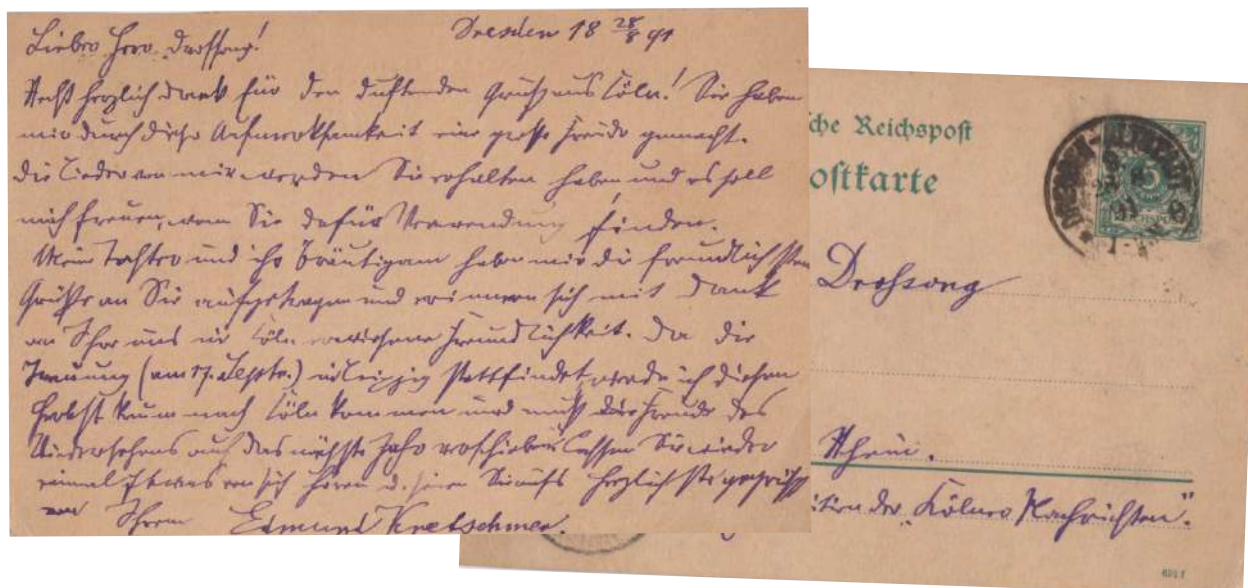 Dresden 18 28/8 91
Lieber Herr Drossong!
Recht herzlich Dank für den duftenden Gruß aus Cöln! Sie haben
mir durch diese Aufmerksamkeit eine große Freude gemacht.
Die Lieder von mir werden Sie erhalten haben und es soll
mich freuen, wenn Sie dafür Verwendung finden.
Meine Tochter und ihr Bräutigam haben mir die freundlichsten
Grüße an Sie aufgetragen und erinnern sich mit Dank
an Ihre uns in Cöln erwiesene Freundlichkeit. Da die
Trauung (am 17. Septr.) in Leipzig stattfindet, werde ich diesen
Herbst kaum nach Cöln kommen und muß die Freude des
Wiedersehens auf das nächste Jahr verschieben. Lassen Sie wieder
einmal Etwas von sich hören u. seien Sie aufs herzlichste gegrüßt
von Ihrem Edmund Kretschmer.
che Reichspost
ostkarte
Drossong
Rhein.
ition der „Kölner Nachrichten".